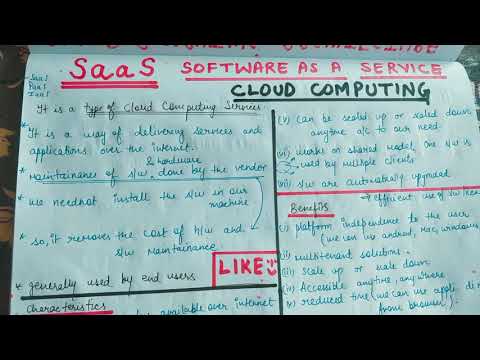 SaaS SOFTWARE AS A SERVICE
CLOUD COMPUTING
-SaaS
PaaS
IaaS
It is a type of Cloud Computing Services
* It is a way of delivering services and
applications over the internet.
& hardware
* Maintainance of s/w done by the vendor
* we neednot install the s/w in our
machine
* so, it removes the cost of h/w and
s/w maintainance
* generally used by end users
LIKE
Characteristics
available over internet
(v) can be scaled up or scaled down
anytime a/c to our need.
(vi) works on shared model, one s/w is
used by multiple clients
(vii) s/w are automatically upgraded
→ efficient use of s/w
Benefits
(i) platform independence to the user
(we can use android, mac, windows
(ii) multitenant solutions.
(iii) scale up or scale down
(iv) Accessible anytime, anywhere
v) reduced time (we can use appli. di
from browser).